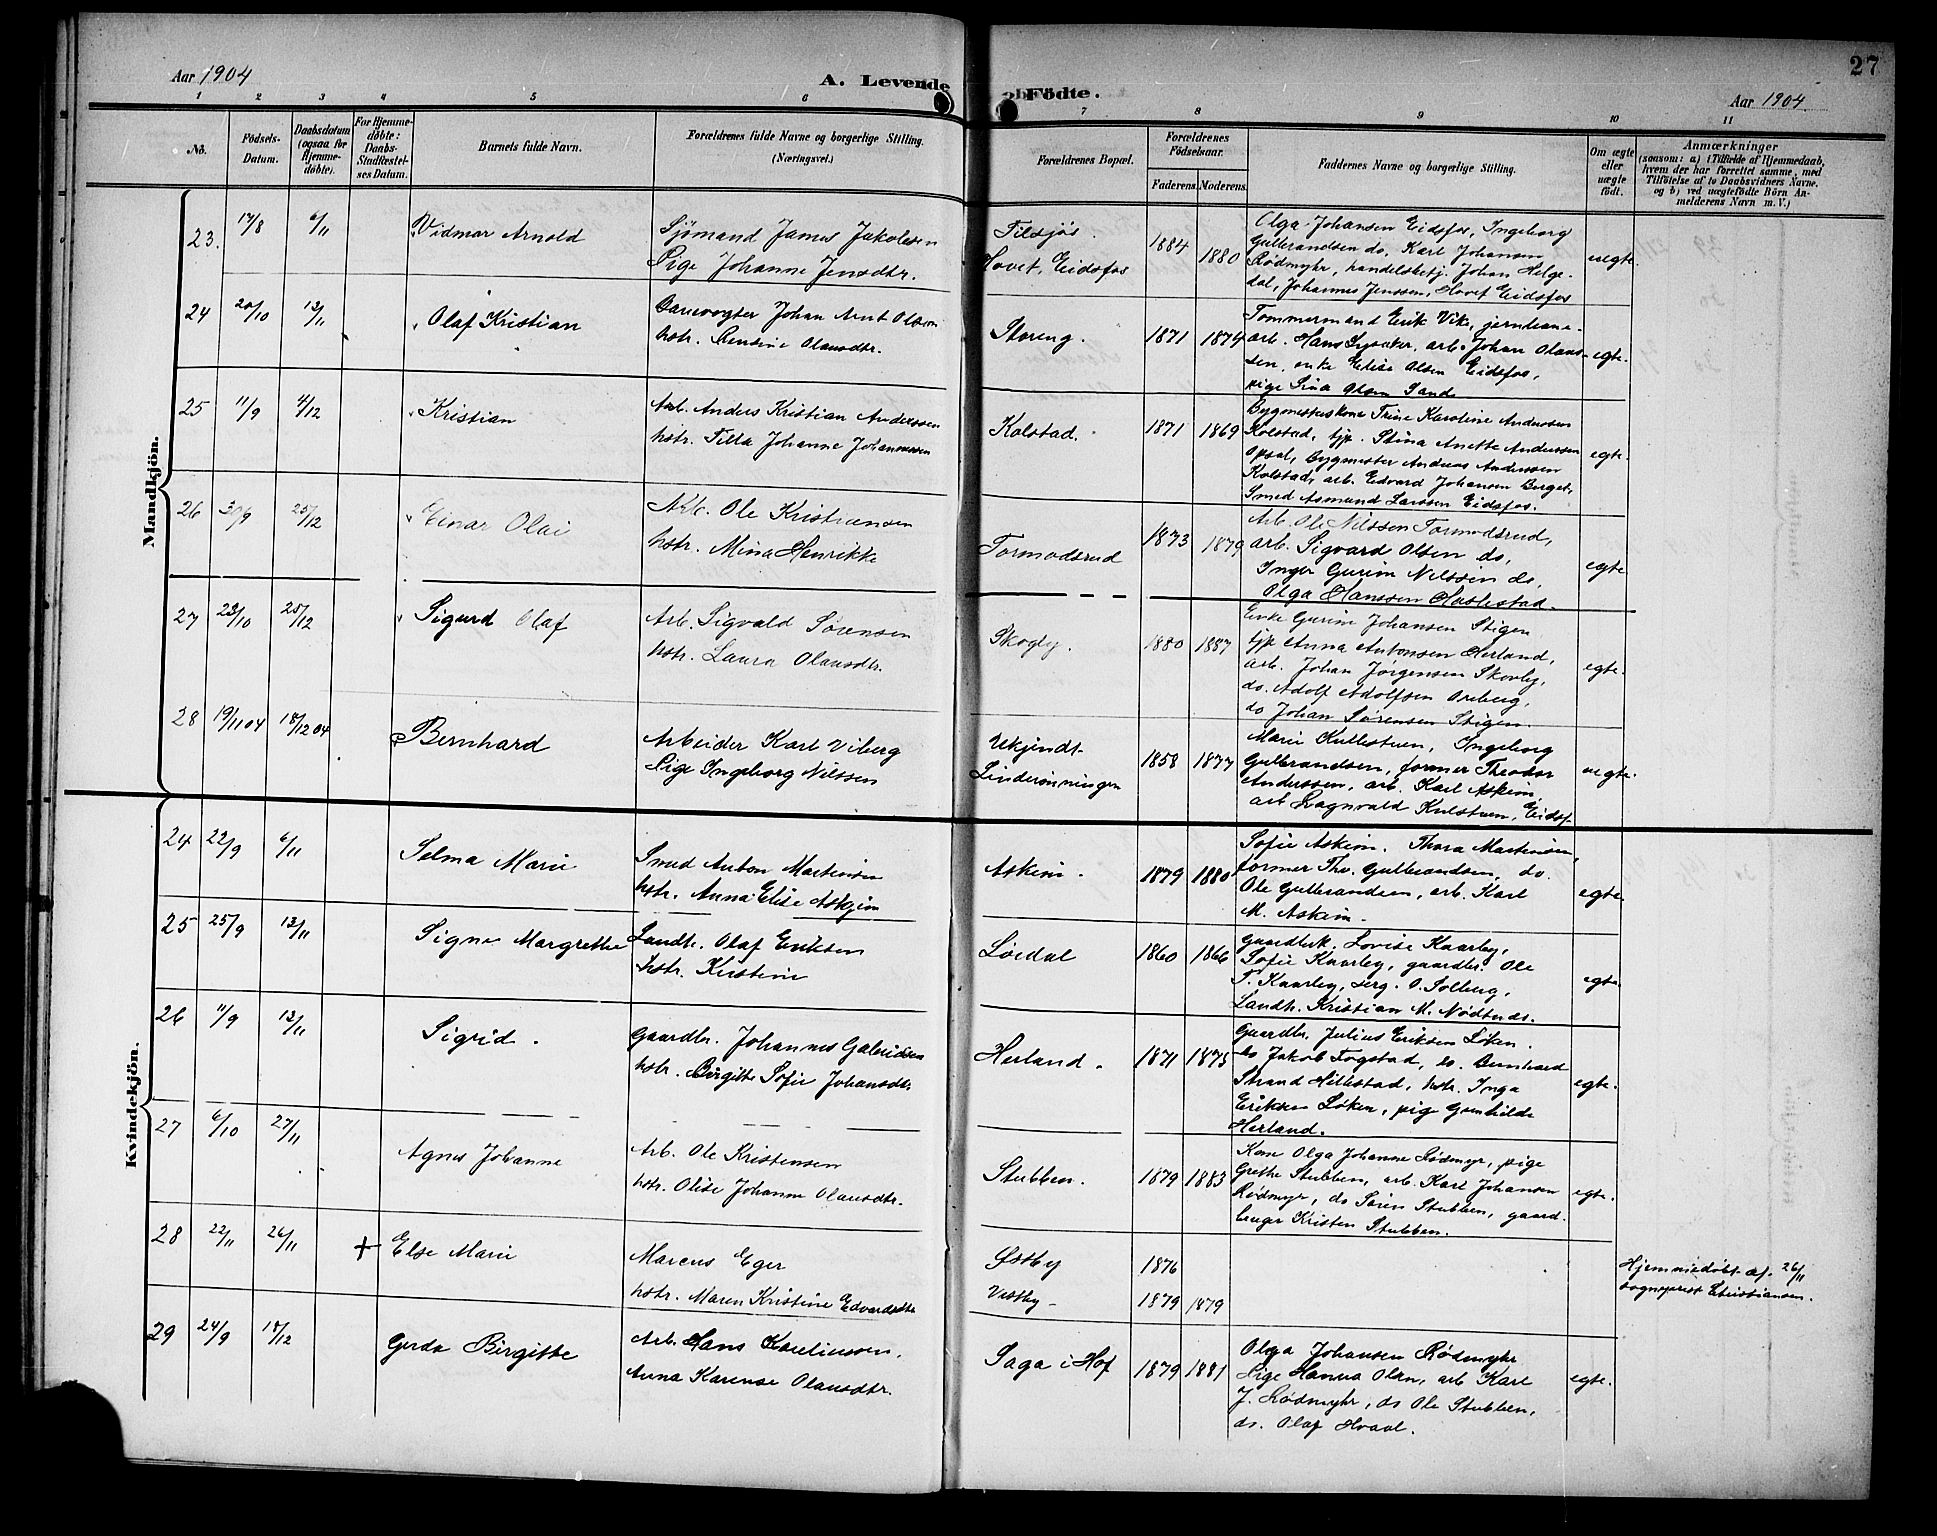 27
Aar 1904
A. Levende
Fødte.
Aar 1904.
1 2 3 4 5 6 7 8 9 10 11
No.
Fødsels-
Datum.
Daabsdatum
(ogsaa for
Hjemme-
døbte).
For Hjemme-
døbte:
Daabs-
Stadfestel-
ses Datum.
Barnets fulde Navn.
Forældrenes fulde Navne og borgerlige Stilling.
(Næringsvei.)
Forældrenes Bopæl.
Forældrenes
Fødselsaar.
Faderens. Moderens.
Faddernes Navne og borgerlige Stilling.
Om ægte
eller
uægte
født.
Anmærkninger
(saasom: a) i Tilfælde af Hjemmedaab,
hvem der har forrettet samme, med
Tilføielse af to Daabsvidners Navne,
og b) ved uægtefødte Børn An-
melderens Navn m. V.)
Mandkjön.
23. 17/8 6/11 Vidmar Arnold
Sjømand James Jakobsen
Pige Johanne Jensdtr.
Filsjøs.
Hovet, Eidsfos
1884 1880
Olga Johansen Eidsfos, Ingeborg
Gulbrandsen do, Karl Johansen
Rødmyhr, handelsbetj. Johan Helge-
dal, Johannes Jenssen, Hovet Eidsfos
uegte.
24 20/10 13/11 Olaf Kristian
Banevogter Johan Arnt Olsen
hstr. Rensine Olausdtr.
Storeng.
1871 1874
Tømmermand Erik Vike, jernbane-
arb. Hans Lysaker, arb. Johan Olaus-
sen, enke Elise Olsen Eidsfos,
pige Sina Olsen Sande
egte.
25 11/9 4/12 Kristian
Arb. Anders Kristian Anderssen
hstr. Tilla Johanne Johannessen
Kolstad.
1871 1869
Bygmesterkone Trine Karoline Anderssen
Kolstad, tjp. Stina Anette Anderssen
Opsal, bygmester Andreas Anderssen
Kolstad, arb. Edvard Johansen Berget,
Smed Asmund Larssen Eidsfos.
egte.
26 30/9 25/12 Einar Olai
Arb. Ole Kristiansen
hstr. Mina Henrikke
Tormodsrud
1873 1879
Arb. Ole Nilssen Tormodsrud,
arb. Sigvard Olsen do,
Inger Gurine Nilssen do,
Olga Hanssen Haslestad.
egte
27 23/10 25/12 Sigurd Olaf
Arb. Sigvald Sørensen
hstr. Laura Olausdtr.
Skogly.
1880 1887
Enke Gurine Johansen Stigen
tjp Anna Antonsen Herland,
arb. Johan Jørgensen Skovly,
do. Adolf Adolfsen Oreberg,
do Johan Sørensen Stigen.
egte.
28 19/11 04 18/12 04 Bernhard
Arbeider Karl Viberg
Pige Ingeborg Nilssen
Ukjendt
Linderønningen
1858 1877
Marie Kullestuen, Ingeborg
Gulbrandsen, former Theodor
Anderssen, arb. Karl Askim,
arb Ragnvald Kulstuen, Eidsf.
uegte.
Kvindekjön.
24 22/9 6/11 Selma Marie
Smed Anton Martinsen
hstr. Anna Elise Askjim
Askim.
1879 1880
Sofie Askim. Thora Martinsen,
former Thv. Gulbrandsen, do.
Ole Gulbrandsen, arb. Karl
M. Askim.
egte.
25 25/9 13/11 Signe Margrethe
Landh. Olaf Eriksen
hstr. Kristine
Løvdal
1860 1866
Gaardbrk. Lovise Kaarby,
Sofie Kaarby, gaardbr. Ole
T. Kaarby, serg. O. Solberg,
Landh. Kristian M. Nødtnes.
egte.
26 11/9 13/11 Sigrid.
Gaardbr. Johannes Gabrielsen
hstr. Birgitte Sofie Johansdtr.
Herland.
1871 1875
Gaardbr. Julius Eriksen Løken.
do Jakob Fogstad, do. Bernhard
Strand Hillestad, hstr. Inga
Eriksen Løken, pige Gunhilde
Herland.
egte.
27 6/10 27/11 Agnes Johanne
Arb. Ole Kristensen
hstr. Olise Johanne Olausdtr.
Stubben.
1879 1883
Kone Olga Johanne Rødmyr, pige
Grethe Stubben, arb. Karl Johansen
Rødmyr, do Søren Stubben, gaard-
bruger Kristen Stubben.
egte.
28 22/11 26/11 + Else Marie
Marcus Eger
hstr. Maren Kristine Edvardsdtr
Østby
Vestby
1876
1879 1879
Hjemmedøbt af 26/11
sogneprest Christiansen.
29 24/9 18/12 Gerda Birgitte
Arb. Hans Karelinssen.
Anna Karense Olausdtr.
Saga i Hof
1879 1881
Olga Johansen Rødmyhr
Pige Hanna Olsen, arb Karl
J. Rødmyhr, do Ole Stubben,
do. Olaf Hvaal.
egte.